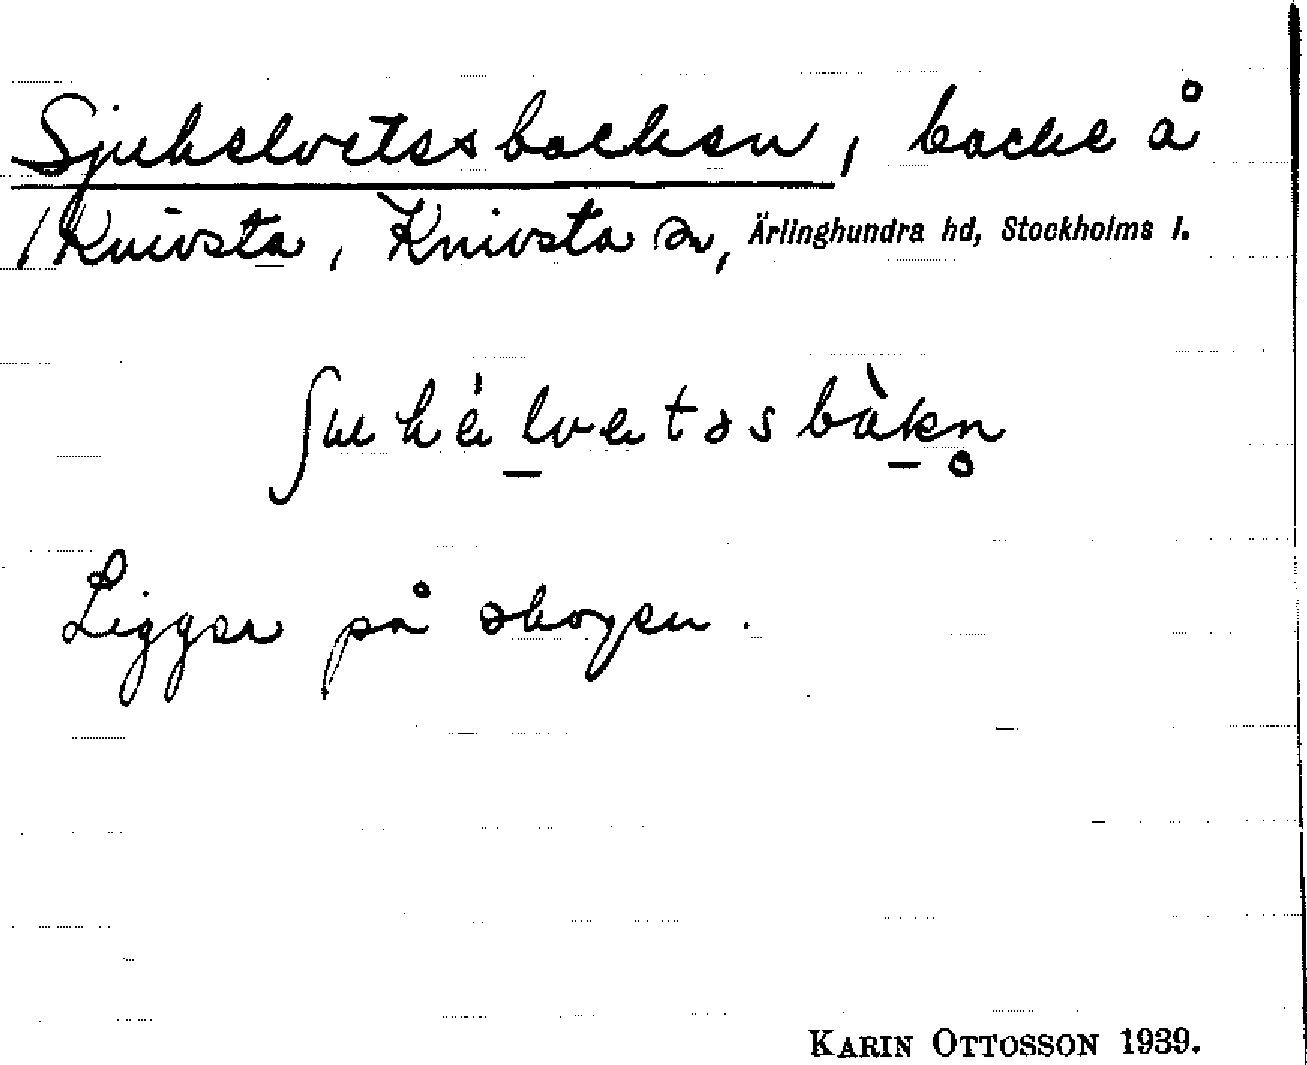 Sjuhelvetesbacken, backe å
/Knivsta, Knivsta sn, Ärlinghundra hd, Stockholms l.
ʃuhä̀lvetəsbàkn̥
Ligger på skogen.
KARIN OTTOSSON 1939.